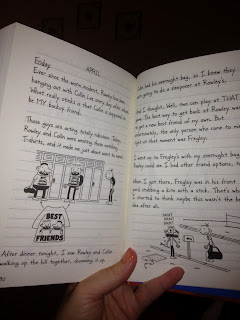 Friday
APRIL
Ever since the worm incident, Rowley has been
hanging out with Collin Lee every day after school.
What really stinks is that Collin is supposed to
be MY backup friend.
These guys are acting totally ridiculous. Today,
Rowley and Collin were wearing these matching
T-shirts, and it made me just about want to vomit.
BEST
FRIENDS
After dinner tonight, I saw Rowley and Collin
walking up the hill together, chumming it up.
Collin had his overnight bag, so I knew they
were going to do a sleepover at Rowley's.
And I thought, Well, two can play at THAT
game. The best way to get back at Rowley was
to get a new best friend of my own. But
unfortunately, the only person who came to mind
right in that moment was Fregley.
I went up to Fregley's with my overnight bag
Rowley could see I had other friend options, too.
When I got there, Fregley was in his front
yard stabbing a kite with a stick. That's when
I started to think maybe this wasn't the best
idea after all.